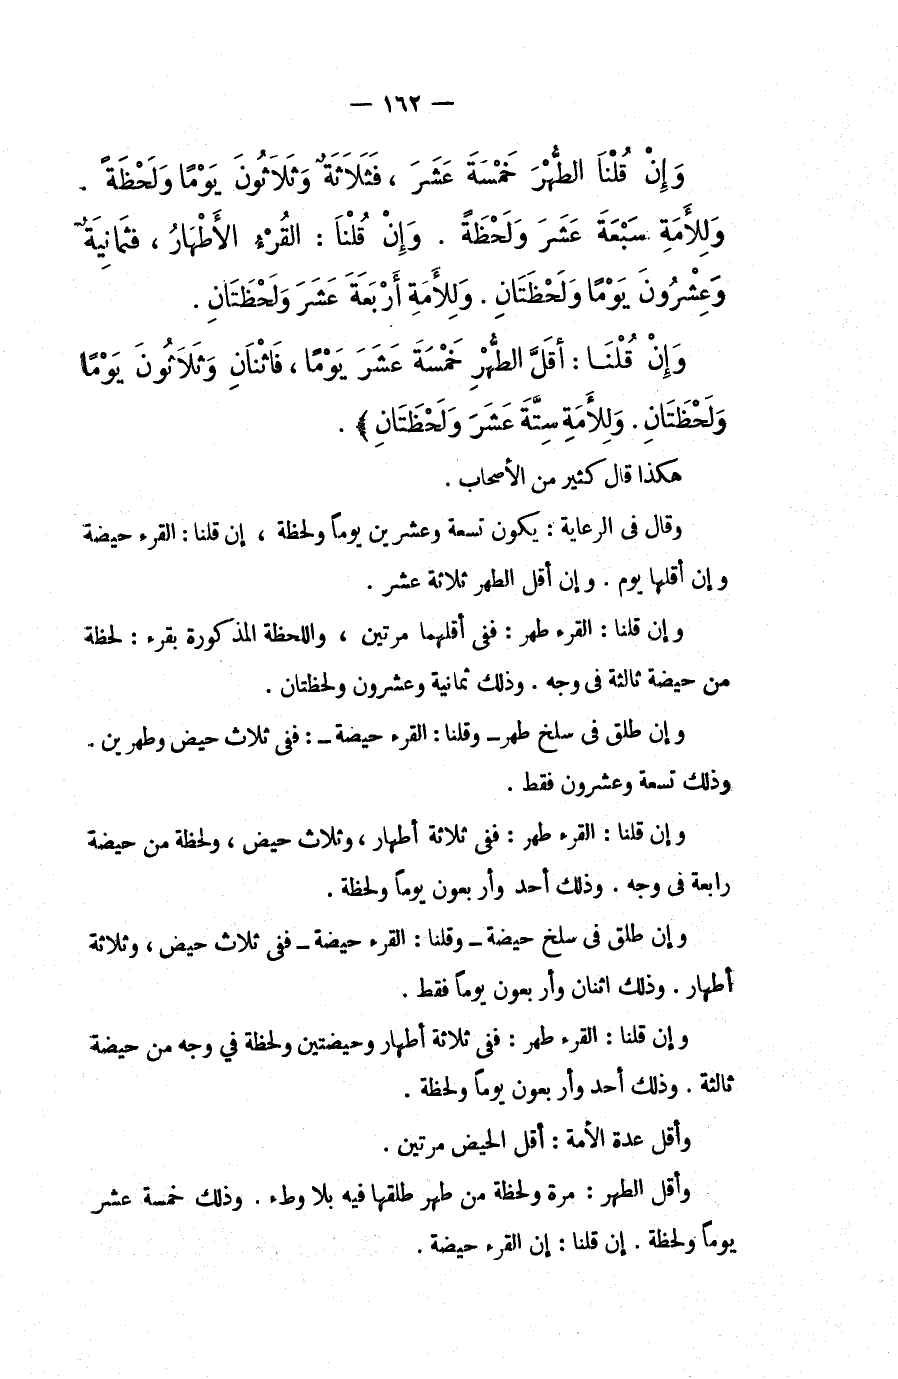 — ١٦٢ —
وَإِنْ قُلْنَا الطُّهْرَ خَمْسَةَ عَشَرَ ، فَثَلَاثَةٌ وَثَلَاثُونَ يَوْمًا وَلَحْظَةً .
وَلِلأَمَةِ سَبْعَةَ عَشَرَ وَلَحْظَةً . وَإِنْ قُلْنَا : القُرْءُ الأَطْهَارُ ، فَثَمَانِيَةٌ
وَعِشْرُونَ يَوْمًا وَلَحْظَتَانِ . وَلِلأَمَةِ أَرْبَعَةَ عَشَرَ وَلَحْظَتَانِ .
وَإِنْ قُلْنَا : أَقَلَّ الطُّهْرِ خَمْسَةَ عَشَرَ يَوْمًا ، فَاثْنَانِ وَثَلَاثُونَ يَوْمًا
وَلَحْظَتَانِ . وَلِلأَمَةِ سِتَّةَ عَشَرَ وَلَحْظَتَانِ ﴾ .
هكذا قال كثير من الأصحاب .
وقال فى الرعاية : يكون تسعة وعشرين يوماً ولحظة ، إن قلنا : القرء حيضة
وإن أقلها يوم . وإن أقل الطهر ثلاثة عشر .
وإن قلنا : القرء طهر : ففى أقلهما مرتين ، واللحظة المذكورة بقرء : لحظة
من حيضة ثالثة فى وجه . وذلك ثمانية وعشرون ولحظتان .
وإن طلق فى سلخ طهر – وقلنا : القرء حيضة – : ففى ثلاث حيض وطهرين .
وذلك تسعة وعشرون فقط .
وإن قلنا : القرء طهر : ففى ثلاثة أطهار ، وثلاث حيض ، ولحظة من حيضة
رابعة فى وجه . وذلك أحد وأربعون يوماً ولحظة .
وإن طلق فى سلخ حيضة – وقلنا : القرء حيضة – ففى ثلاث حيض ، وثلاثة
أطهار . وذلك اثنان وأربعون يوماً فقط .
وإن قلنا : القرء طهر : ففى ثلاثة أطهار وحيضتين ولحظة في وجه من حيضة
ثالثة . وذلك أحد وأربعون يوماً ولحظة .
وأقل عدة الأمة : أقل الحيض مرتين .
وأقل الطهر : مرة ولحظة من طهر طلقها فيه بلا وطء . وذلك خمسة عشر
يوماً ولحظة . إن قلنا : إن القرء حيضة .